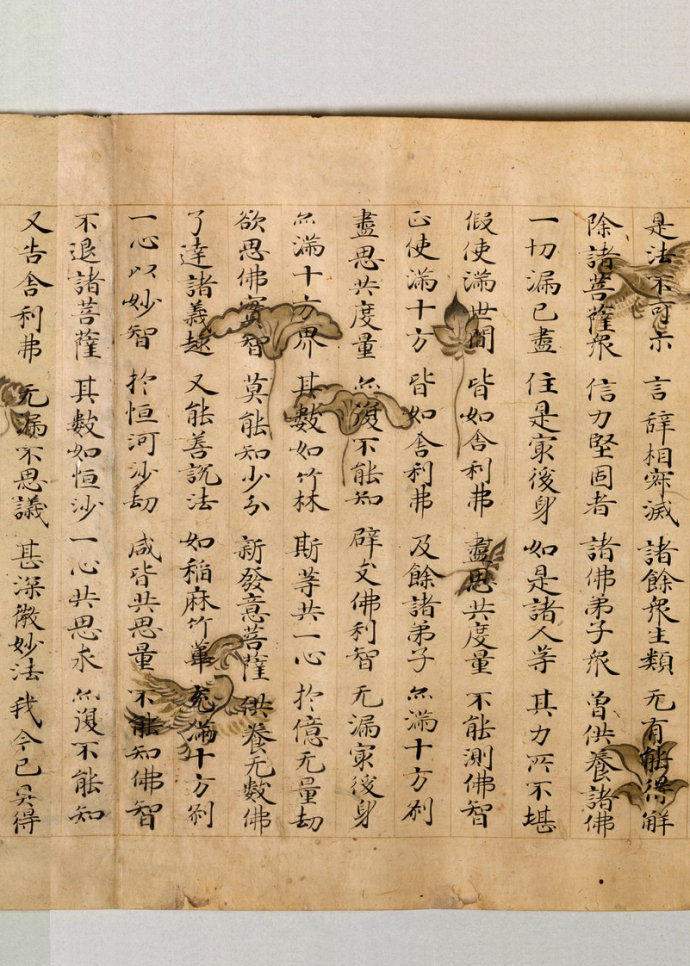 是法不可示 言辞相寂滅 諸餘衆生類 无有能得解
除諸菩薩衆 信力堅固者 諸佛弟子衆 曽供養諸佛
一切漏已盡 住是㝡後身 如是諸人等 其力所不堪
假使滿世間 皆如舎利弗 盡思共度量 不能測佛智
正使滿十方 皆如舎利弗 及餘諸弟子 亦滿十方刹
盡思共度量 亦復不能知 辟支佛利智 无漏㝡後身
亦滿十方界 其數如竹林 斯等共一心 於億无量劫
欲思佛實智 莫能知少分 新發意菩薩 供養无數佛
了達諸義趣 又能善説法 如稲麻竹葦 充滿十方刹
一心以妙智 於恒河沙劫 咸皆共思量 不能知佛智
不退諸菩薩 其數如恒沙 一心共思求 亦復不能知
又告舎利弗 无漏不思議 甚深微妙法 我今已具得